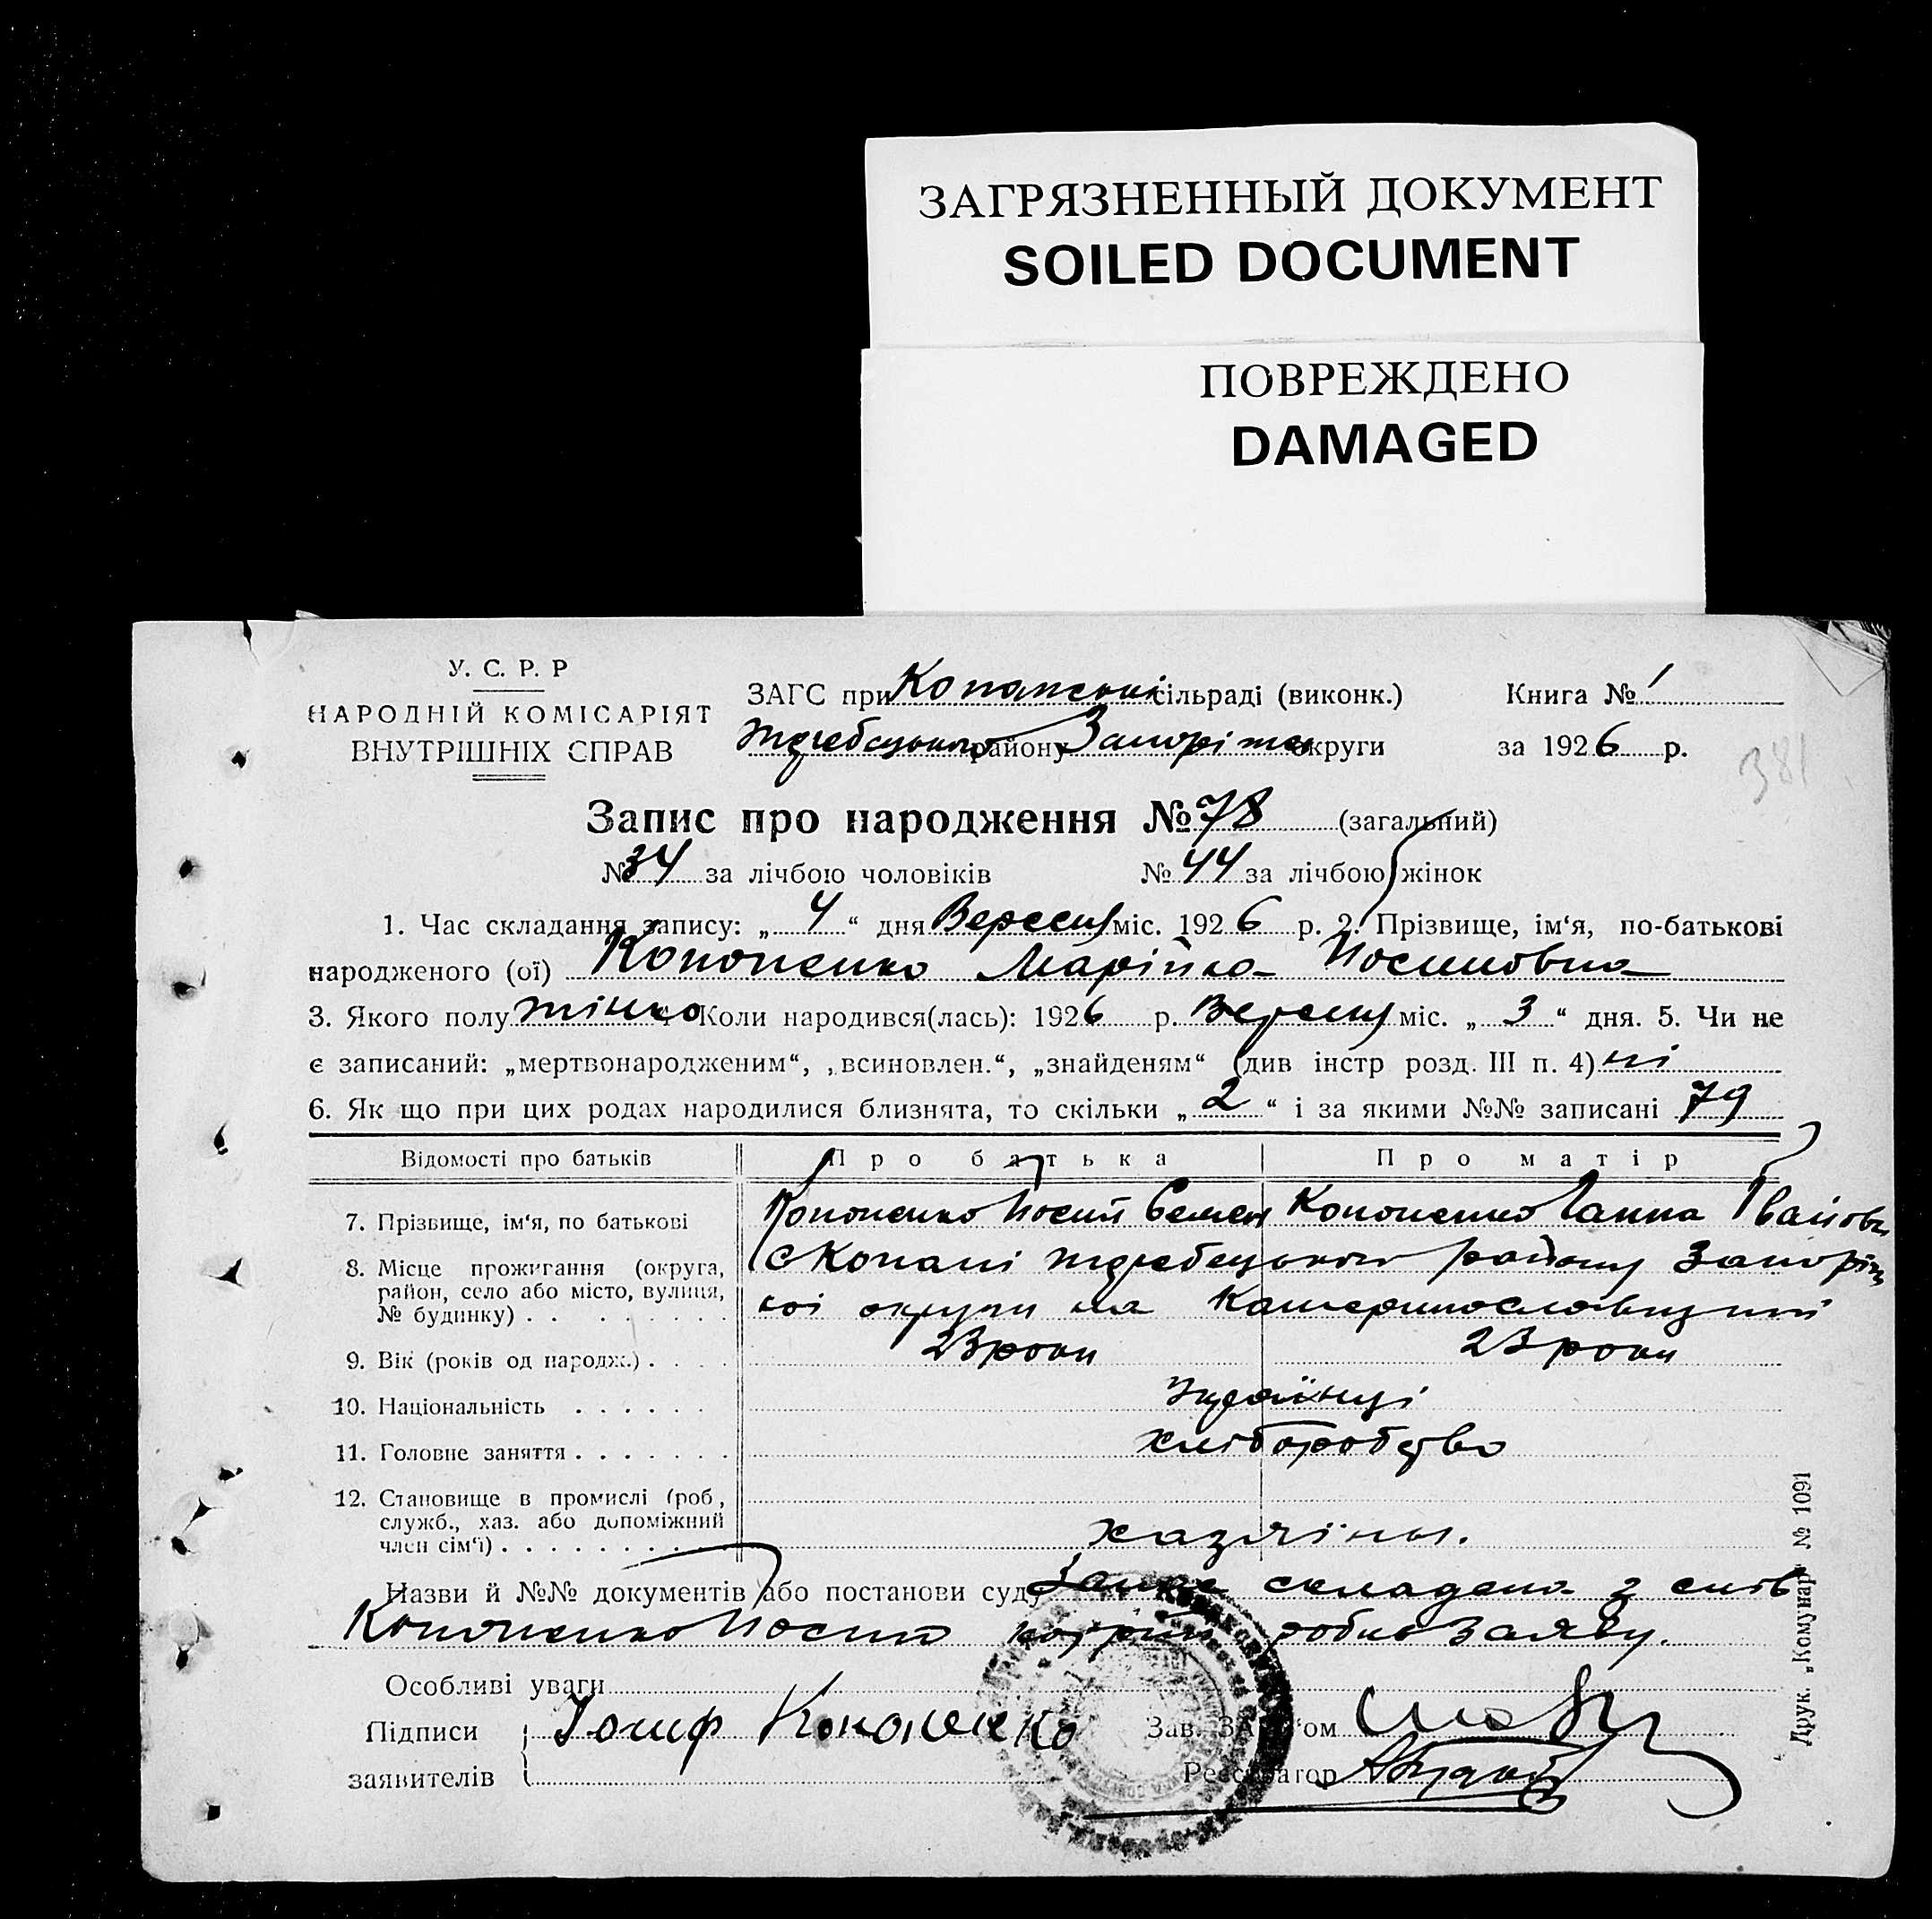 ЗАГРЯЗНЕННЫЙ ДОКУМЕНТ
SOILED DOCUMENT
ПОВРЕЖДЕНО
DAMAGED
У. С. Р. Р
НАРОДНІЙ КОМІСАРІЯТ
ВНУТРІШНІХ СПРАВ
ЗАГС при Копанській сільраді (виконк.) Книга № 1
району Запоріжськ округи за 1926 р.
381
Запис про народження № 78 (загальний)
№ 34 за лічбою чоловіків № 44 за лічбою жінок
1. Час складання запису: „ 4 “ дня Вересня міс. 1926 р. 2. Прізвище, ім‘я, по-батькові
народженого (ої) Кононенко Марійка Йосиповна
3. Якого полу жінка 4. Коли народився(лась): 1926 р. Вересня міс. „ 3 “ дня. 5. Чи не
є записаний: „мертвонародженим“, „всиновлен.“, „знайденям“ (див інстр розд. III п. 4) ні
6. Як що при цих родах народилися близнята, то скільки „ 2 “ і за якими №№ записані 79
Відомості про батьків Про батька Про матір
7. Прізвище, ім‘я, по батькові Кононенко Йосип Семен Кононенко Ганна Іванов
8. Місце проживання (округа, район, село або місто, вулиця, № будинку) . . с Копані району Запоріж
кої округи на Катеринославщині
9. Вік (років од народж.) . . . . 23 роки 23 роки
10. Національність . . . . . . Українці
11. Головне заняття . . . . . . . хліборобство
12. Становище в промислі (роб, служб., хаз. або допоміжний член сім‘ї) . . . . . . . . . . хазяїни.
Назви й №№ документів або постанови суду Запис складено з слів
Кононенко Йосип котрий робив заяву.
Особливі уваги
Підписи заявителів Йосиф Кононенко
Зав. ЗАГС‘ом
Реєстратор
Друк. „Комунар“ № 1091